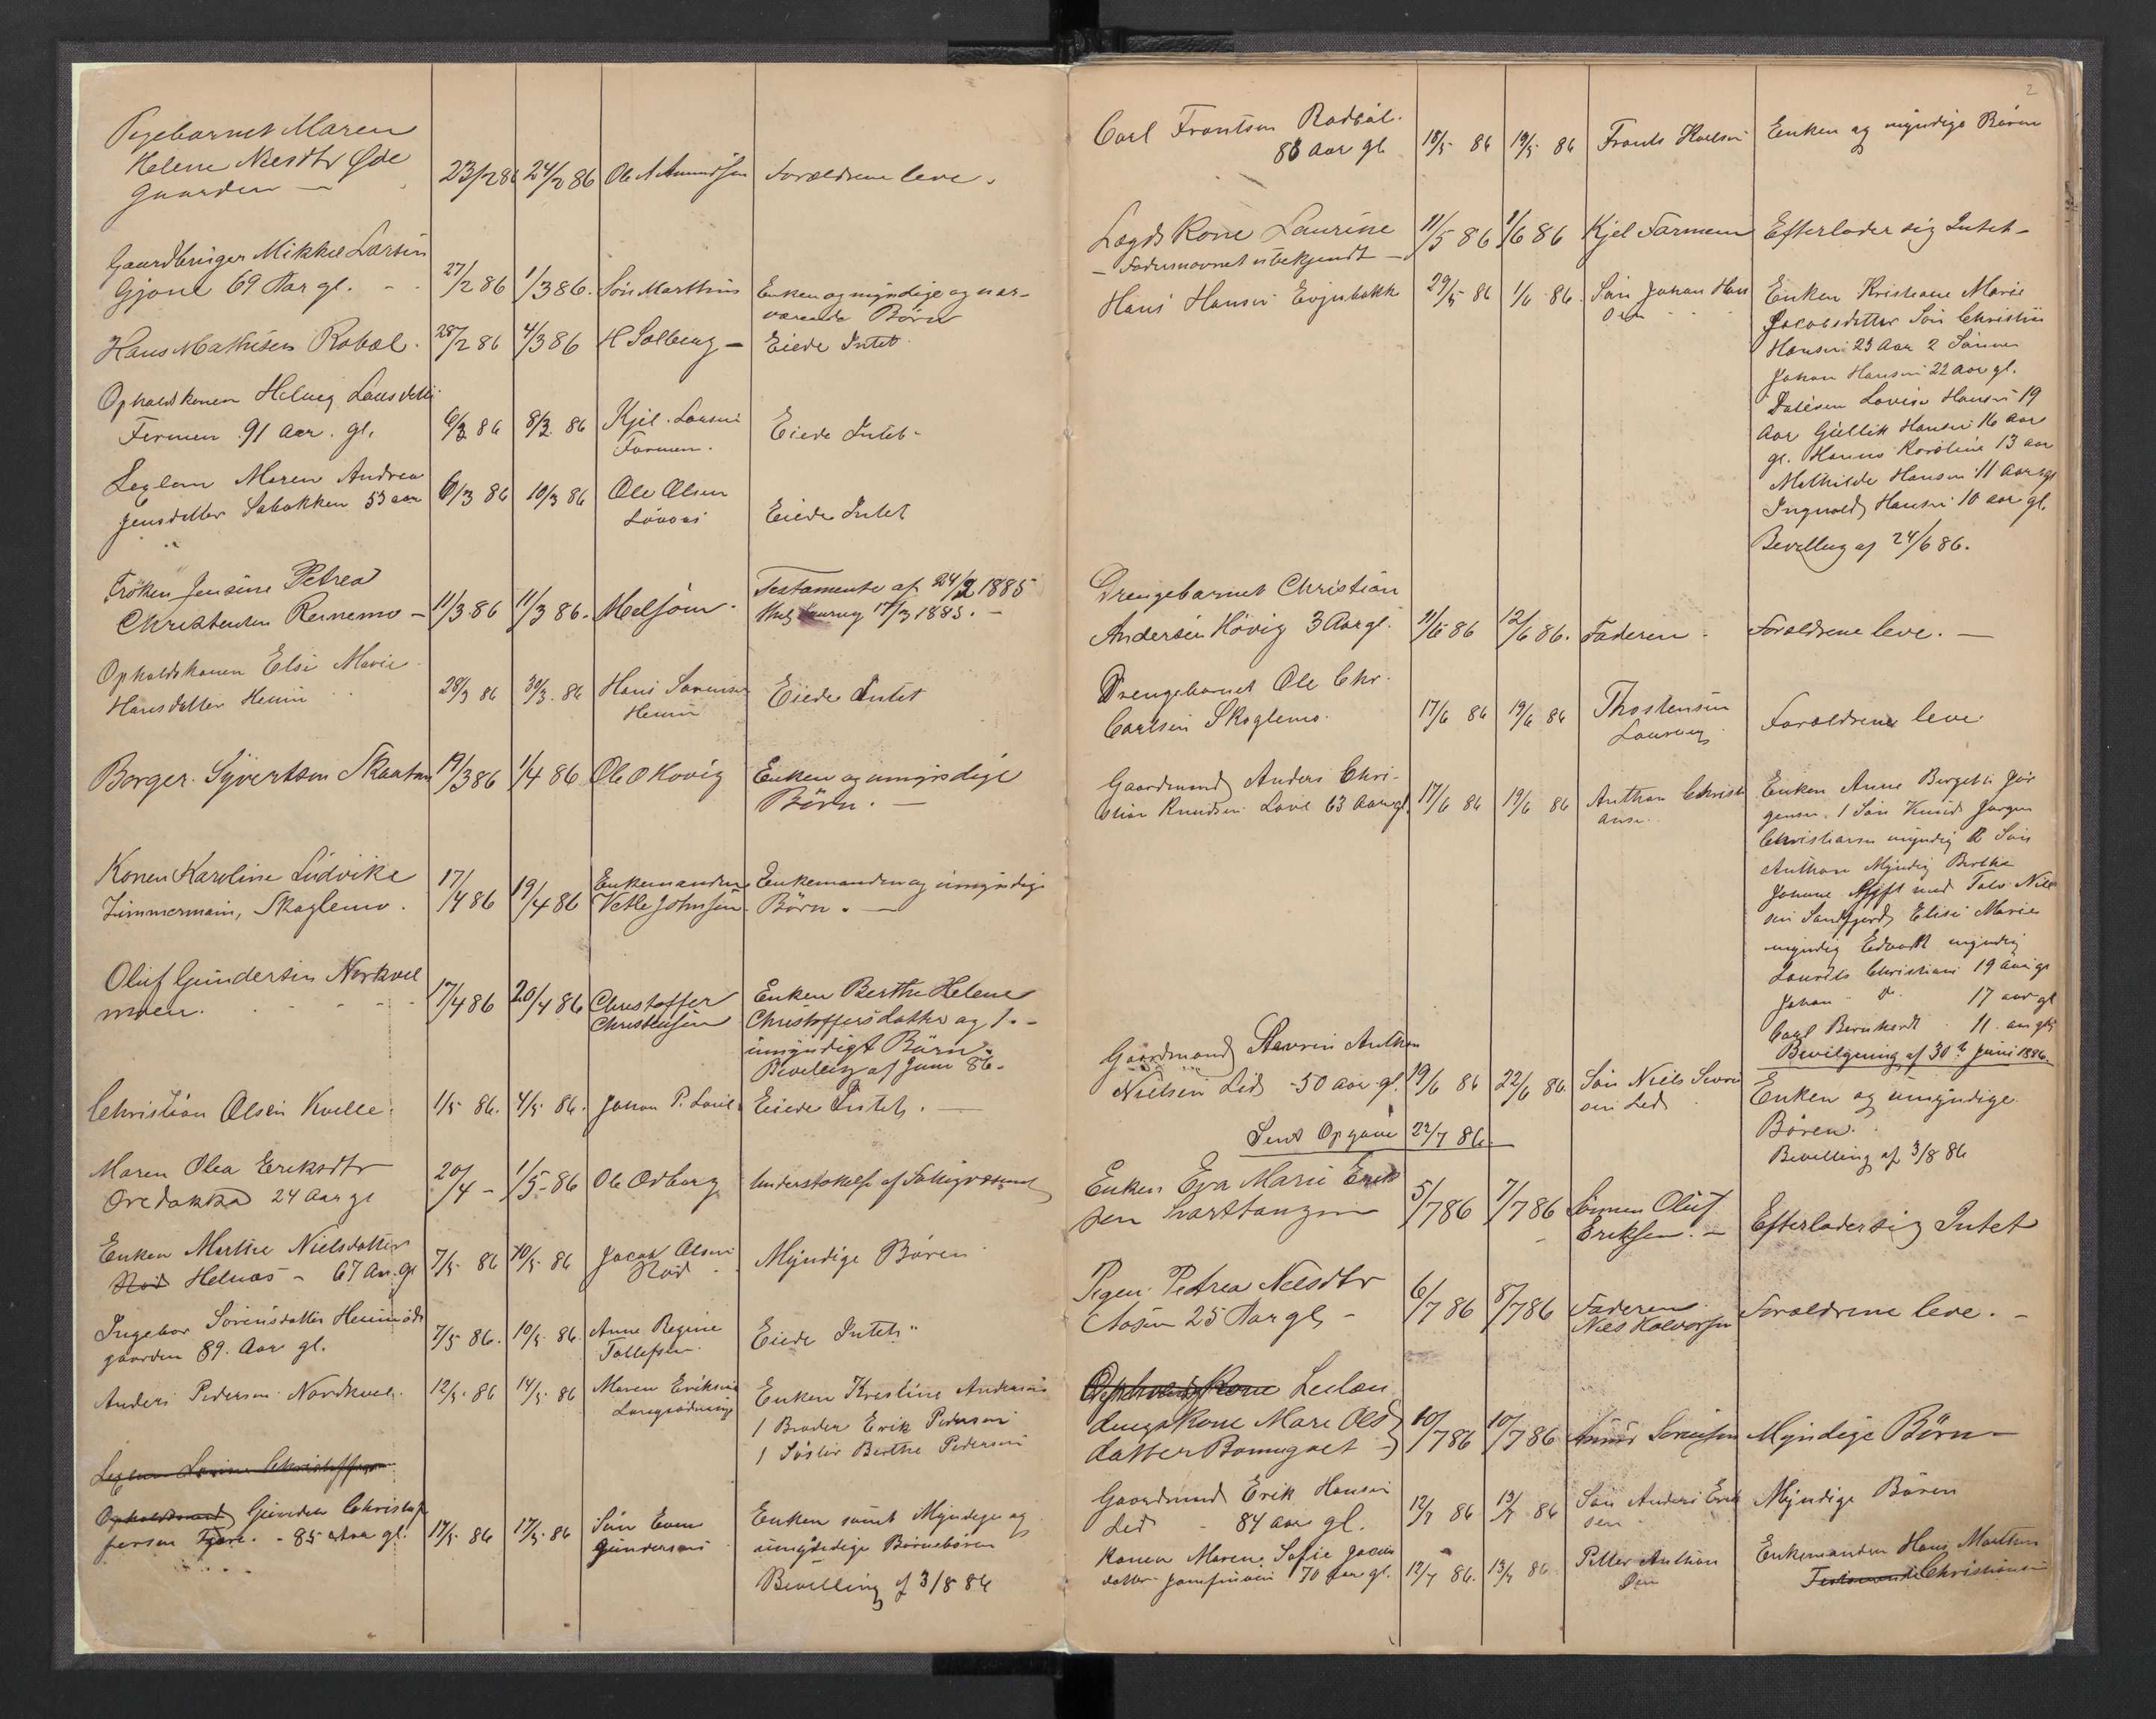 Pigebarnet Maren
Helene Nielsdtr Øde
gaarden — 23/2 86 24/2 86 Ole A Amundsen Forældrene leve.
Gaardbruger Mikkel Larsen
Gjone 69 Aar gl. 27/2 86 1/3 86. Søn Marthin Enken og myndige og nær-
værende Børn
Hans Mathisen Robøl. 28/2 86 4/3 86 H Solberg — Eiede Intet
Opholdskonen Helvig Larsdatter
Fermen 91 Aar. gl. 6/3 86 8/3 86 Kjel. Larsen Eiede Intet-
Farmen.
Leglem Maren Andrea
Jensdatter Sabakken 53 aar 6/3 86 10/3 86 Ole Olsen Eiede Intet
Løvaas
Frøken Jensine Petrea Testamente af 24/2 1885
Christensen Rennemo — 11/3 86 11/3 86. Melsom. 17/3 1885. —
Opholdskonen Elsi Marie
Hansdatter Hemin 28/3 86 30/3. 86 Hans Sørensen Eiede Intet
Hemin
Borger. Syvertsen Skaatan 19/3 86 1/4 86 Ole O Hovig Enken og umyndige
Børn. —
Konen Karoline Ludvike 17/4 86 19/4 86 Enkemanden Enkemanden og umyndige
Zimmermann, Skaglemo. Vetle Johnsen. Børn. —
Oluf Gundersen Norkvel
moen. 17/4 86 20/4 86 Christoffer Enken Berthe Helene
Christensen Christoffersdatter og 1.-
umyndigt Børn.
Bevilling af Juni 86.
Christian Olsen Kvelle. 1/5 86. 4/5 86. Johan P. Eiede Intet. —
Maren Olea Eriksdtr
Oredakka 24 Aar gl 20/4 - 1/5 - 86 Ole Odberg Understøttelse af Fattigvæsenet
Enken Marthe Nielsdatter
Rød Helnæs - 67 Aar. gl 7/5 86 10/5 86 Jacob Olsen Myndige Børen
Rød
Ingebor Sørensdatter Hemmøde
gaarden 89. Aar gl. 7/5 86. 10/5. 86. Anne Regine Eiede Intet "
Tollefsen.
Anders Pedersen Nordkvel. 12/5. 86 14/5. 86 Maren Eriksen Enken Kristine Andersen
1 Broder Erik Pedersen
1 Søster Berthe Pedersen
Opholdsmand Gunder Christof
fersen - 85 Aar gl. 17/5. 86 17/5. 86 Søn Even Enken samt Myndige og
Gundersen umyndige Børnebøren
Bevilling af 3/8 86
2
Carl Frantsen Rødbøl.
88 Aar gl 18/5 86 19/5 86 Frants Enken og myndige Børen
Lægds Kone Laurine 11/5 86 1/6 86 Kjel Farmen Efterlader sig Intet -
- Fadernavnet ubekjendt -
Hans Hansen Evjebakke 29/5 86 1/6 86. Søn Johan Han Enken Kristiane Marie
sen Jacobsdatter Søn Christian
Hansen 23 Aar 2 Sønner
Johan Hansen 22 aar gl.
Datteren Lovise Hansen 19
Aar Gullik Hansen 16 Aar
gl. Hanna Karoline 13 aar
Mathilde Hansen 11 Aar gl
Ingvald Hansen 10 aar gl.
Bevilling af 24/6 86.
Drengebarnet Christian
Andersen Høvig 3 Aar gl. 11/6 86 12/6 86. Faderen. Forældrene leve. —
Drengebarnet Ole Chr.
Carlsen Skoglemo. 17/6 86 19/6 86 Thostensen Forældrene leve.
Gaardmand Anders Chri-
stian Knudsen Love 63 Aar gl. 17/6 86 19/6 86 Anthon Christi Enken Anne Birgethe Jør
ansen. gensen. 1 Søn Knud Jørgen
Christiansen myndig 2 Søn
Anthon Myndig Berthe
Johanne Gift med Nils
sen Sandefjord Elise Marie
myndig Edvardt myndig
Laurits Christian 19 Aar gl
Johan - Do. 17 aar gl
Carl Bernhardt 11. aar gl
Bevilgning af 30te Juni 1886.
Gaardmand Severin Anthon
Nielsen Lid -50 Aar gl. 19/6 86 22/6 86. Søn Niels Severin Enken og umyndige
sen Lid Børen.
Sent Opgave 22/7 86. Bevilling af 3/8 86
Enken Eva Marie Erik
sen Svartangen 5/7 86 7/7 86 Sønnen Oluf Efterlader sig Intet
Eriksen. —
Pigen. Petrea Nilsdtr
Aasen 25 Aar gl - 6/7 86 8/7 86 Faderen Forældrene leve. —
Niels Halvorsen
Opholdskone
Kone Mari Ols
datter Bommgaet 10/7 86 10/7 86 Sørensen Myndige Børn —
Gaardmand Erik Hansen
Lid - 84 aar gl. 12/7 86 13/7 86 Søn Anders Erik Myndige Børen
sen
Konen Maren Sofie Jacobs
datter 70 Aar gl. 12/7 86. 13/7 86 Petter Anthon Enkemanden Hans Mortten
sen Christiansen